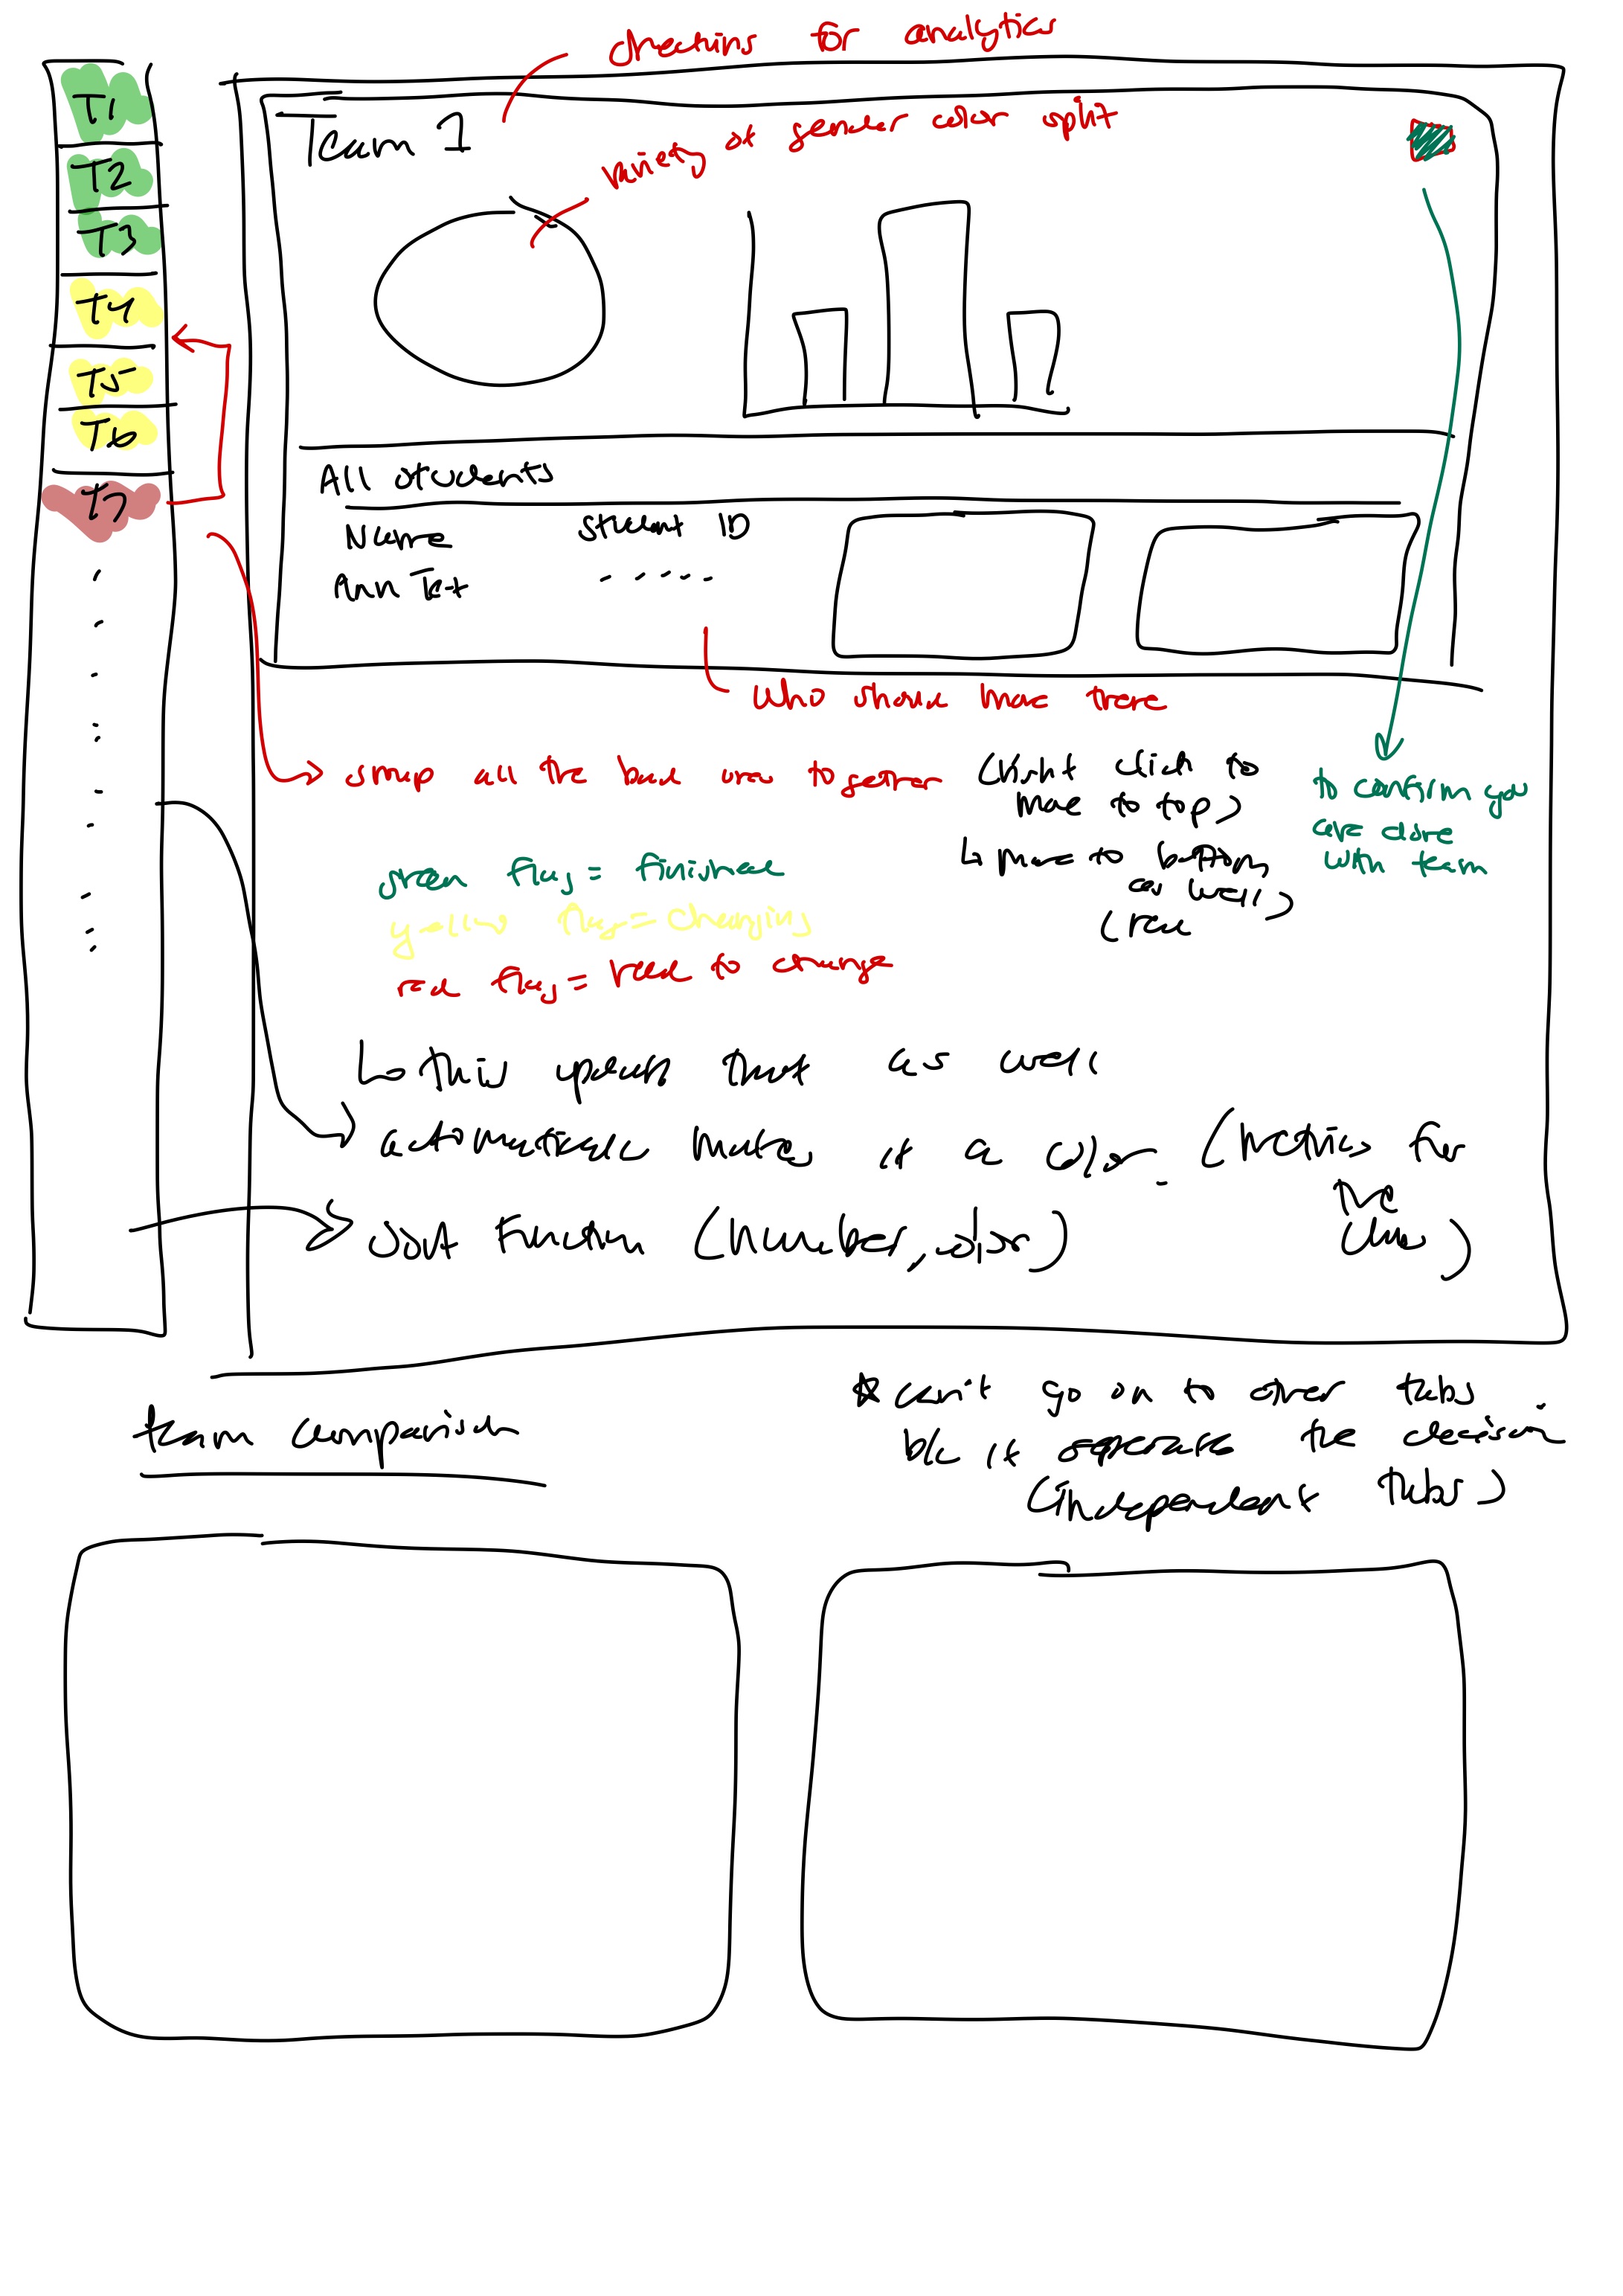 checking for analytics
T1
T2
T3
T4
T5
T6
T7
Team 1
variety of gender color split
All students
Name Student ID
Ann
who should move there
group all the bad ones together
(right click to
move to top)
↳ move to bottom
as well)
(red
to confirm you
are done
with team
green flag = finished
yellow flag = changing
red flag = need to change
↳ this updates that as well
automatically makes it a color (metrics for
the
class)
sort function (number, color)
team comparison
☆ can't go on to other tabs
b/c it separate the decision
(independent tabs)